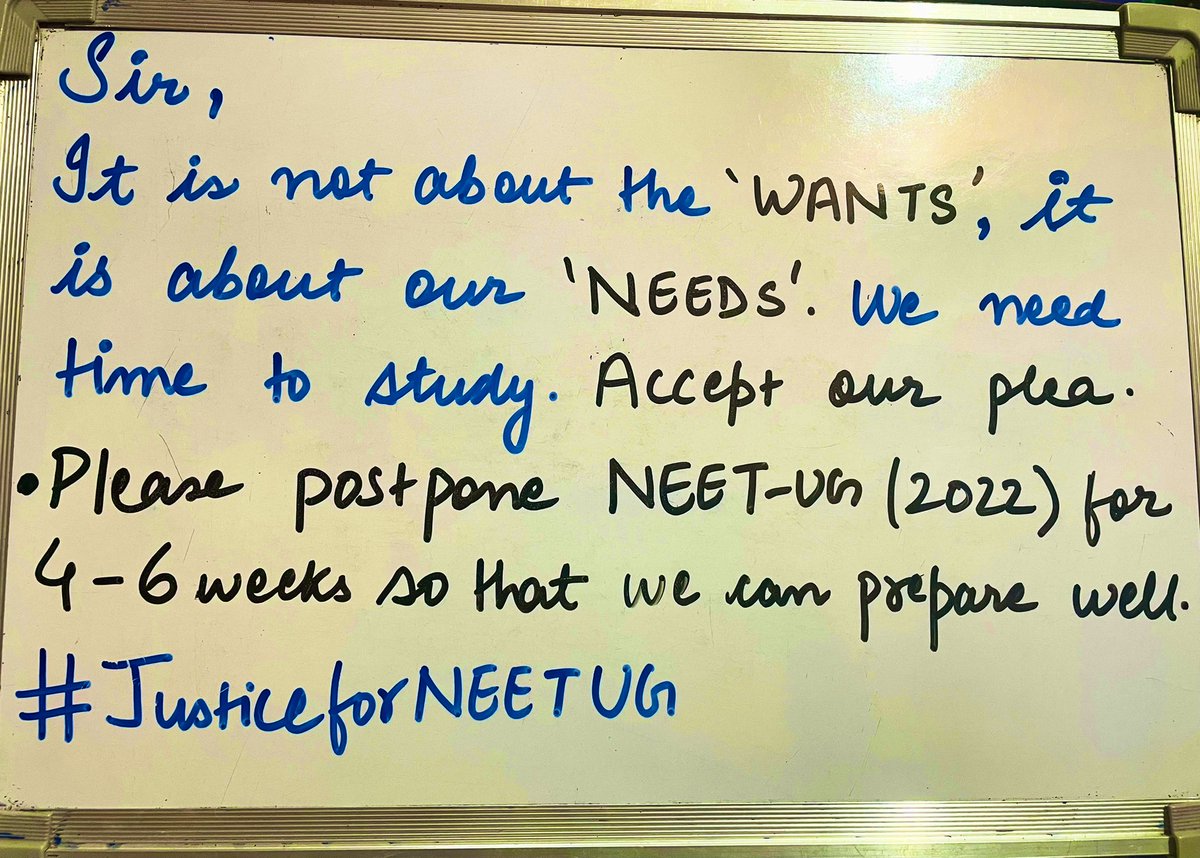 Sir,
It is not about the 'WANTS', it
is about our 'NEEDS'. We need
time to study. Accept our plea.
•Please postpone NEET-UG (2022) for
4-6 weeks so that we can prepare well.
#JusticeforNEETUG